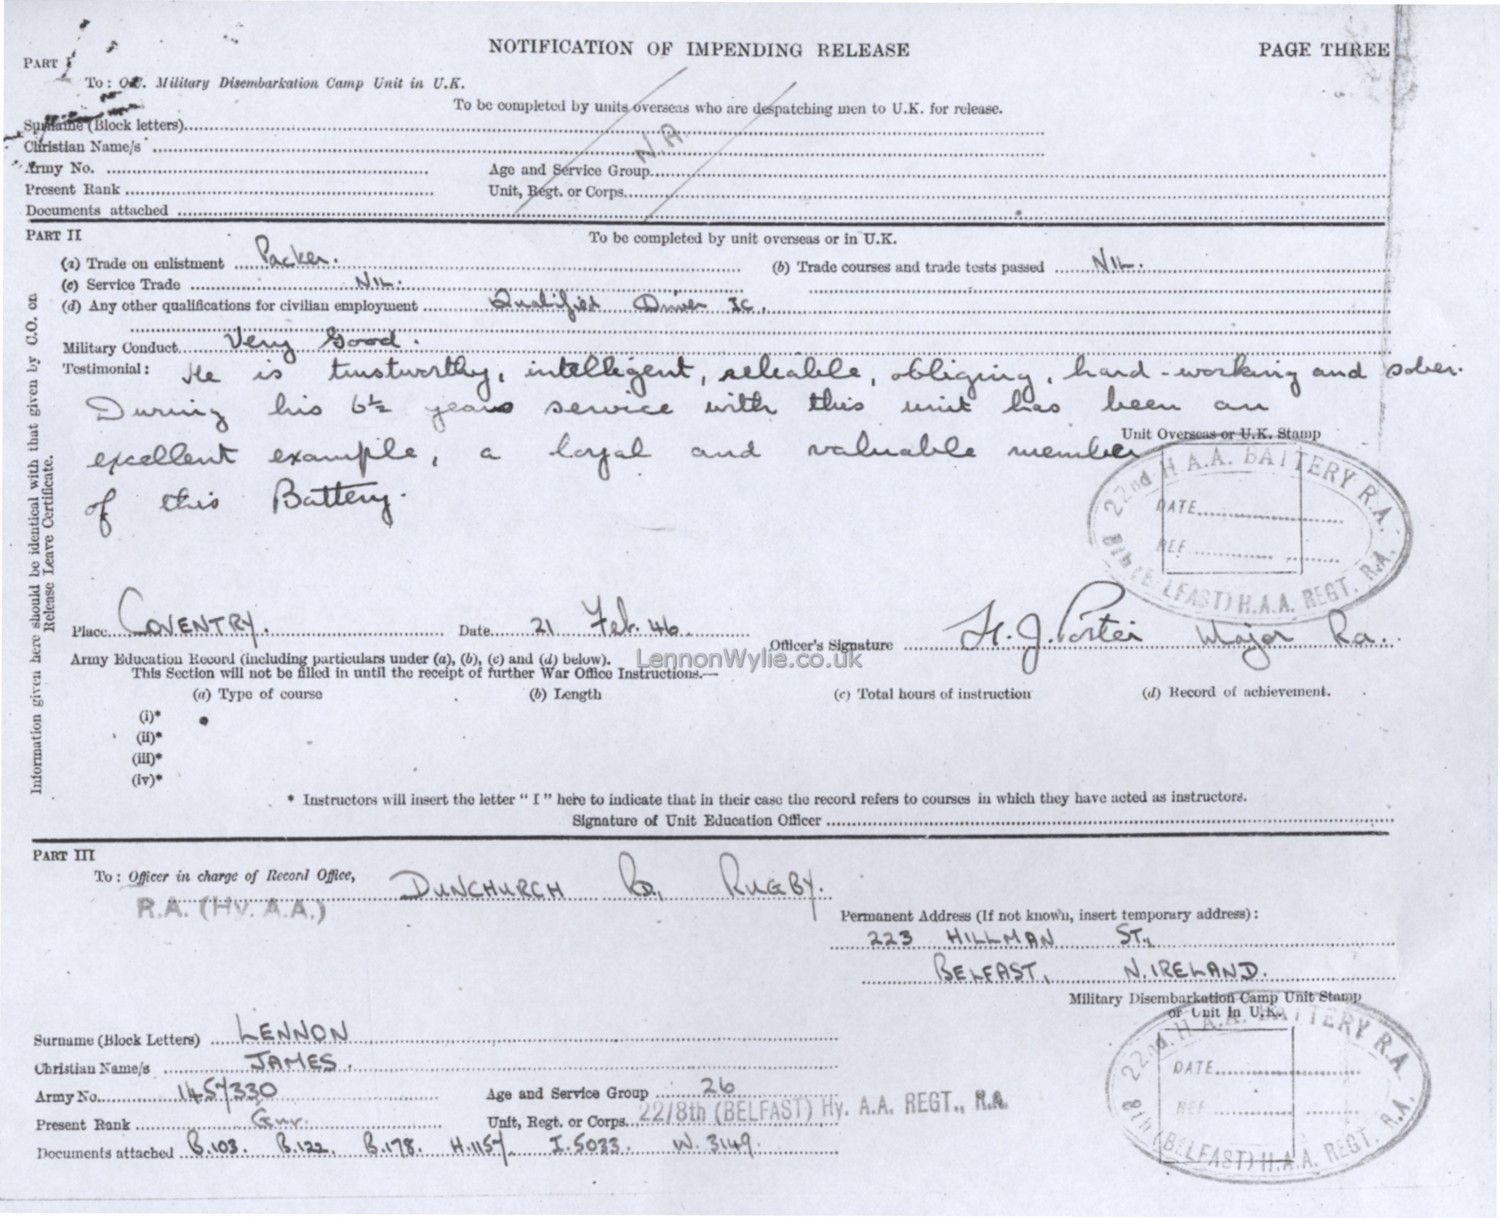 NOTIFICATION OF IMPENDING RELEASE
PAGE THREE
PART I
To: O.C. Military Disembarkation Camp Unit in U.K.
To be completed by units overseas who are despatching men to U.K. for release.
Surname (Block letters)
Christian Name/s
N.A.
Army No.
Age and Service Group
Present Rank
Unit, Regt. or Corps
Documents attached
PART II
To be completed by unit overseas or in U.K.
(a) Trade on enlistment Packer.
(b) Trade courses and trade tests passed NIL.
(c) Service Trade NIL.
(d) Any other qualifications for civilian employment Qualified Driver IC.
Military Conduct Very Good.
Testimonial: He is trustworthy, intelligent, reliable, obliging, hard-working and sober.
During his 6½ years service with this unit has been an
Unit Overseas or U.K. Stamp
excellent example, a loyal and valuable member
of this Battery.
22nd H.A.A. BATTERY R.A.
DATE
REF
8th (BELFAST) H.A.A. REGT. R.A.
Information given here should be identical with that given by C.O. on
Release Leave Certificate.
Place COVENTRY. Date 21 Feb. 46
Officer's Signature H. J. Porter Major Ra.
LennonWylie.co.uk
Army Education Record (including particulars under (a), (b), (c) and (d) below).
This Section will not be filled in until the receipt of further War Office Instructions.—
(a) Type of course (b) Length (c) Total hours of instruction (d) Record of achievement.
(i)*
(ii)*
(iii)*
(iv)*
* Instructors will insert the letter "I" here to indicate that in their case the record refers to courses in which they have acted as instructors.
Signature of Unit Education Officer
PART III
To: Officer in charge of Record Office, DUNCHURCH Rd, RUGBY.
R.A. (HV. A.A.)
Permanent Address (If not known, insert temporary address):
223 HILLMAN ST.,
BELFAST, N. IRELAND.
Military Disembarkation Camp Unit Stamp
or Unit in U.K.
22nd. H.A.A. BATTERY R.A.
DATE
REF
8th (BELFAST) H.A.A. REGT. R.A.
Surname (Block Letters) LENNON
Christian Name/s JAMES.
Army No. 1457330
Age and Service Group 26
Present Rank Gnr.
Unit, Regt. or Corps 22/8th (BELFAST) Hy. A.A. REGT., R.A.
Documents attached B.103. B.122. B.178. H.1157. I.5033. W.3149.